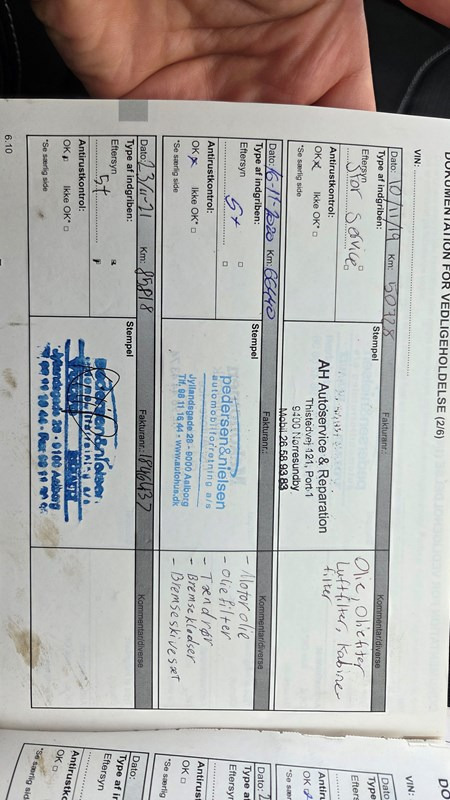 DOKUMENTATION FOR VEDLIGEHOLDELSE (2/6)
VIN:
Dato: 10/11/19 Km: 50728
Type af indgriben:
Eftersyn
Stor Service
Antirustkontrol:
OK x Ikke OK*
*Se særlig side
Stempel
Fakturanr.:
AH Autoservice & Reparation
Thistedvej 121, Port 1
9400 Nørresundby
Mobil 26 58 93 83
Kommentar/diverse
Olie, oliefilter
Luftfilter, Kabine
filter
Dato: 16-11-2020 Km: 66440
Type af indgriben:
Eftersyn 5+
Antirustkontrol:
OK x Ikke OK*
*Se særlig side
Stempel
Fakturanr.:
pedersen&nielsen
automobilforretning a/s
Jyllandsgade 28 - 9000 Aalborg
Tlf. 98 11 16 44 - www.autohus.dk
Kommentar/diverse
- Motorolie
- Oliefilter
- Tændrør
- Bremseklodser
- Bremseskivesæt
Dato: 23/11-21 Km: 85818
Type af indgriben:
Eftersyn
5+
Antirustkontrol:
OK Ikke OK*
*Se særlig side
Stempel
Fakturanr.: 1846437
Jyllandsgade 28 - 9100 Aalborg
Kommentar/diverse
6.10
VIN:
Dato:
Type
Efters
Antiru
OK
*Se særlig
Dato: 2
Type af
Eftersyn
Antirust
OK
*Se særlig
Dato:
Type af in
Eftersyn
Antirustko
OK
*Se særlig